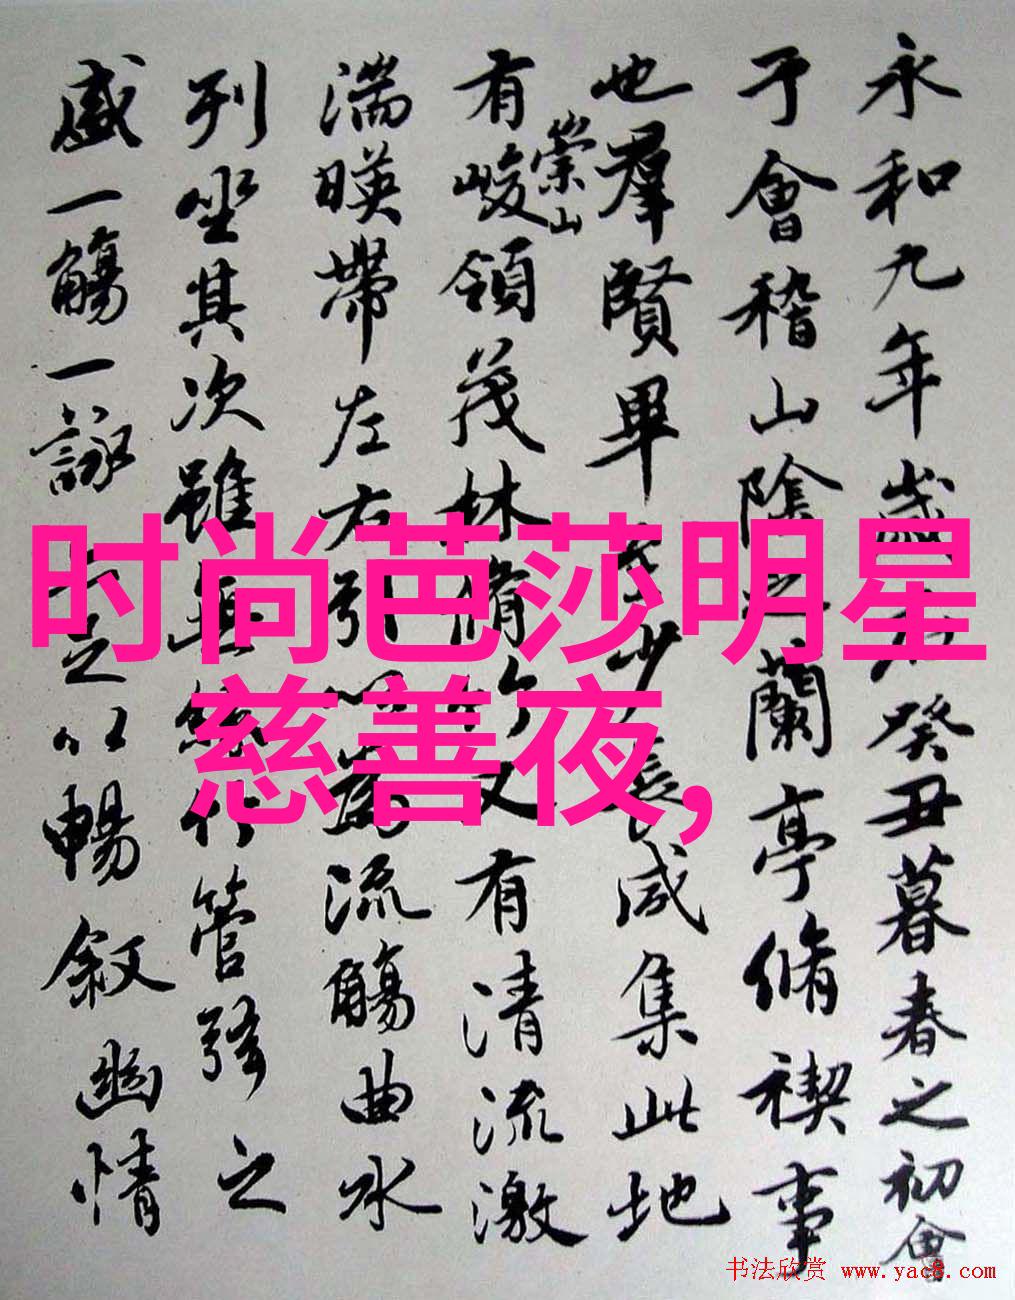 永和九年歲在癸丑暮春之初會
于會稽山陰之蘭亭脩禊事
也羣賢畢至少長咸集此地
有崇山峻領茂林脩竹又有清流激
湍暎帶左右引以為流觴曲水
列坐其次雖無絲竹管弦之
盛一觴一詠亦足以暢敘幽情
时尚芭莎明星
慈善夜,
书法欣赏 www.yac8.com